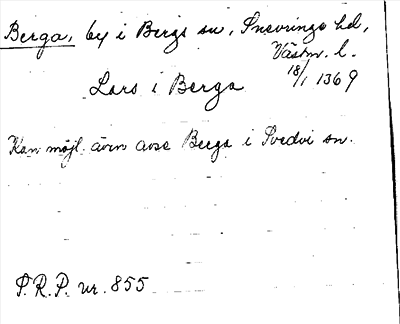 Berga, by i Bergs sn, Snevringe hd,
Västm. l.
18/1 1369
Lars i Berga
Kan möjl. även avse Berga i Svedvi sn.
S.R.P. nr. 855